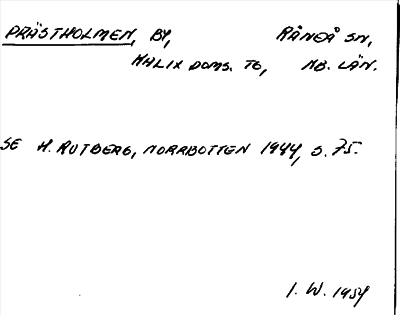 PRÄSTHOLMEN, BY, RÅNEÅ SN,
KALIX DOMS. TG, NB. LÄN.
SE H. RUTBERG, NORRBOTTEN 1944, S. 75.
I. W. 1954